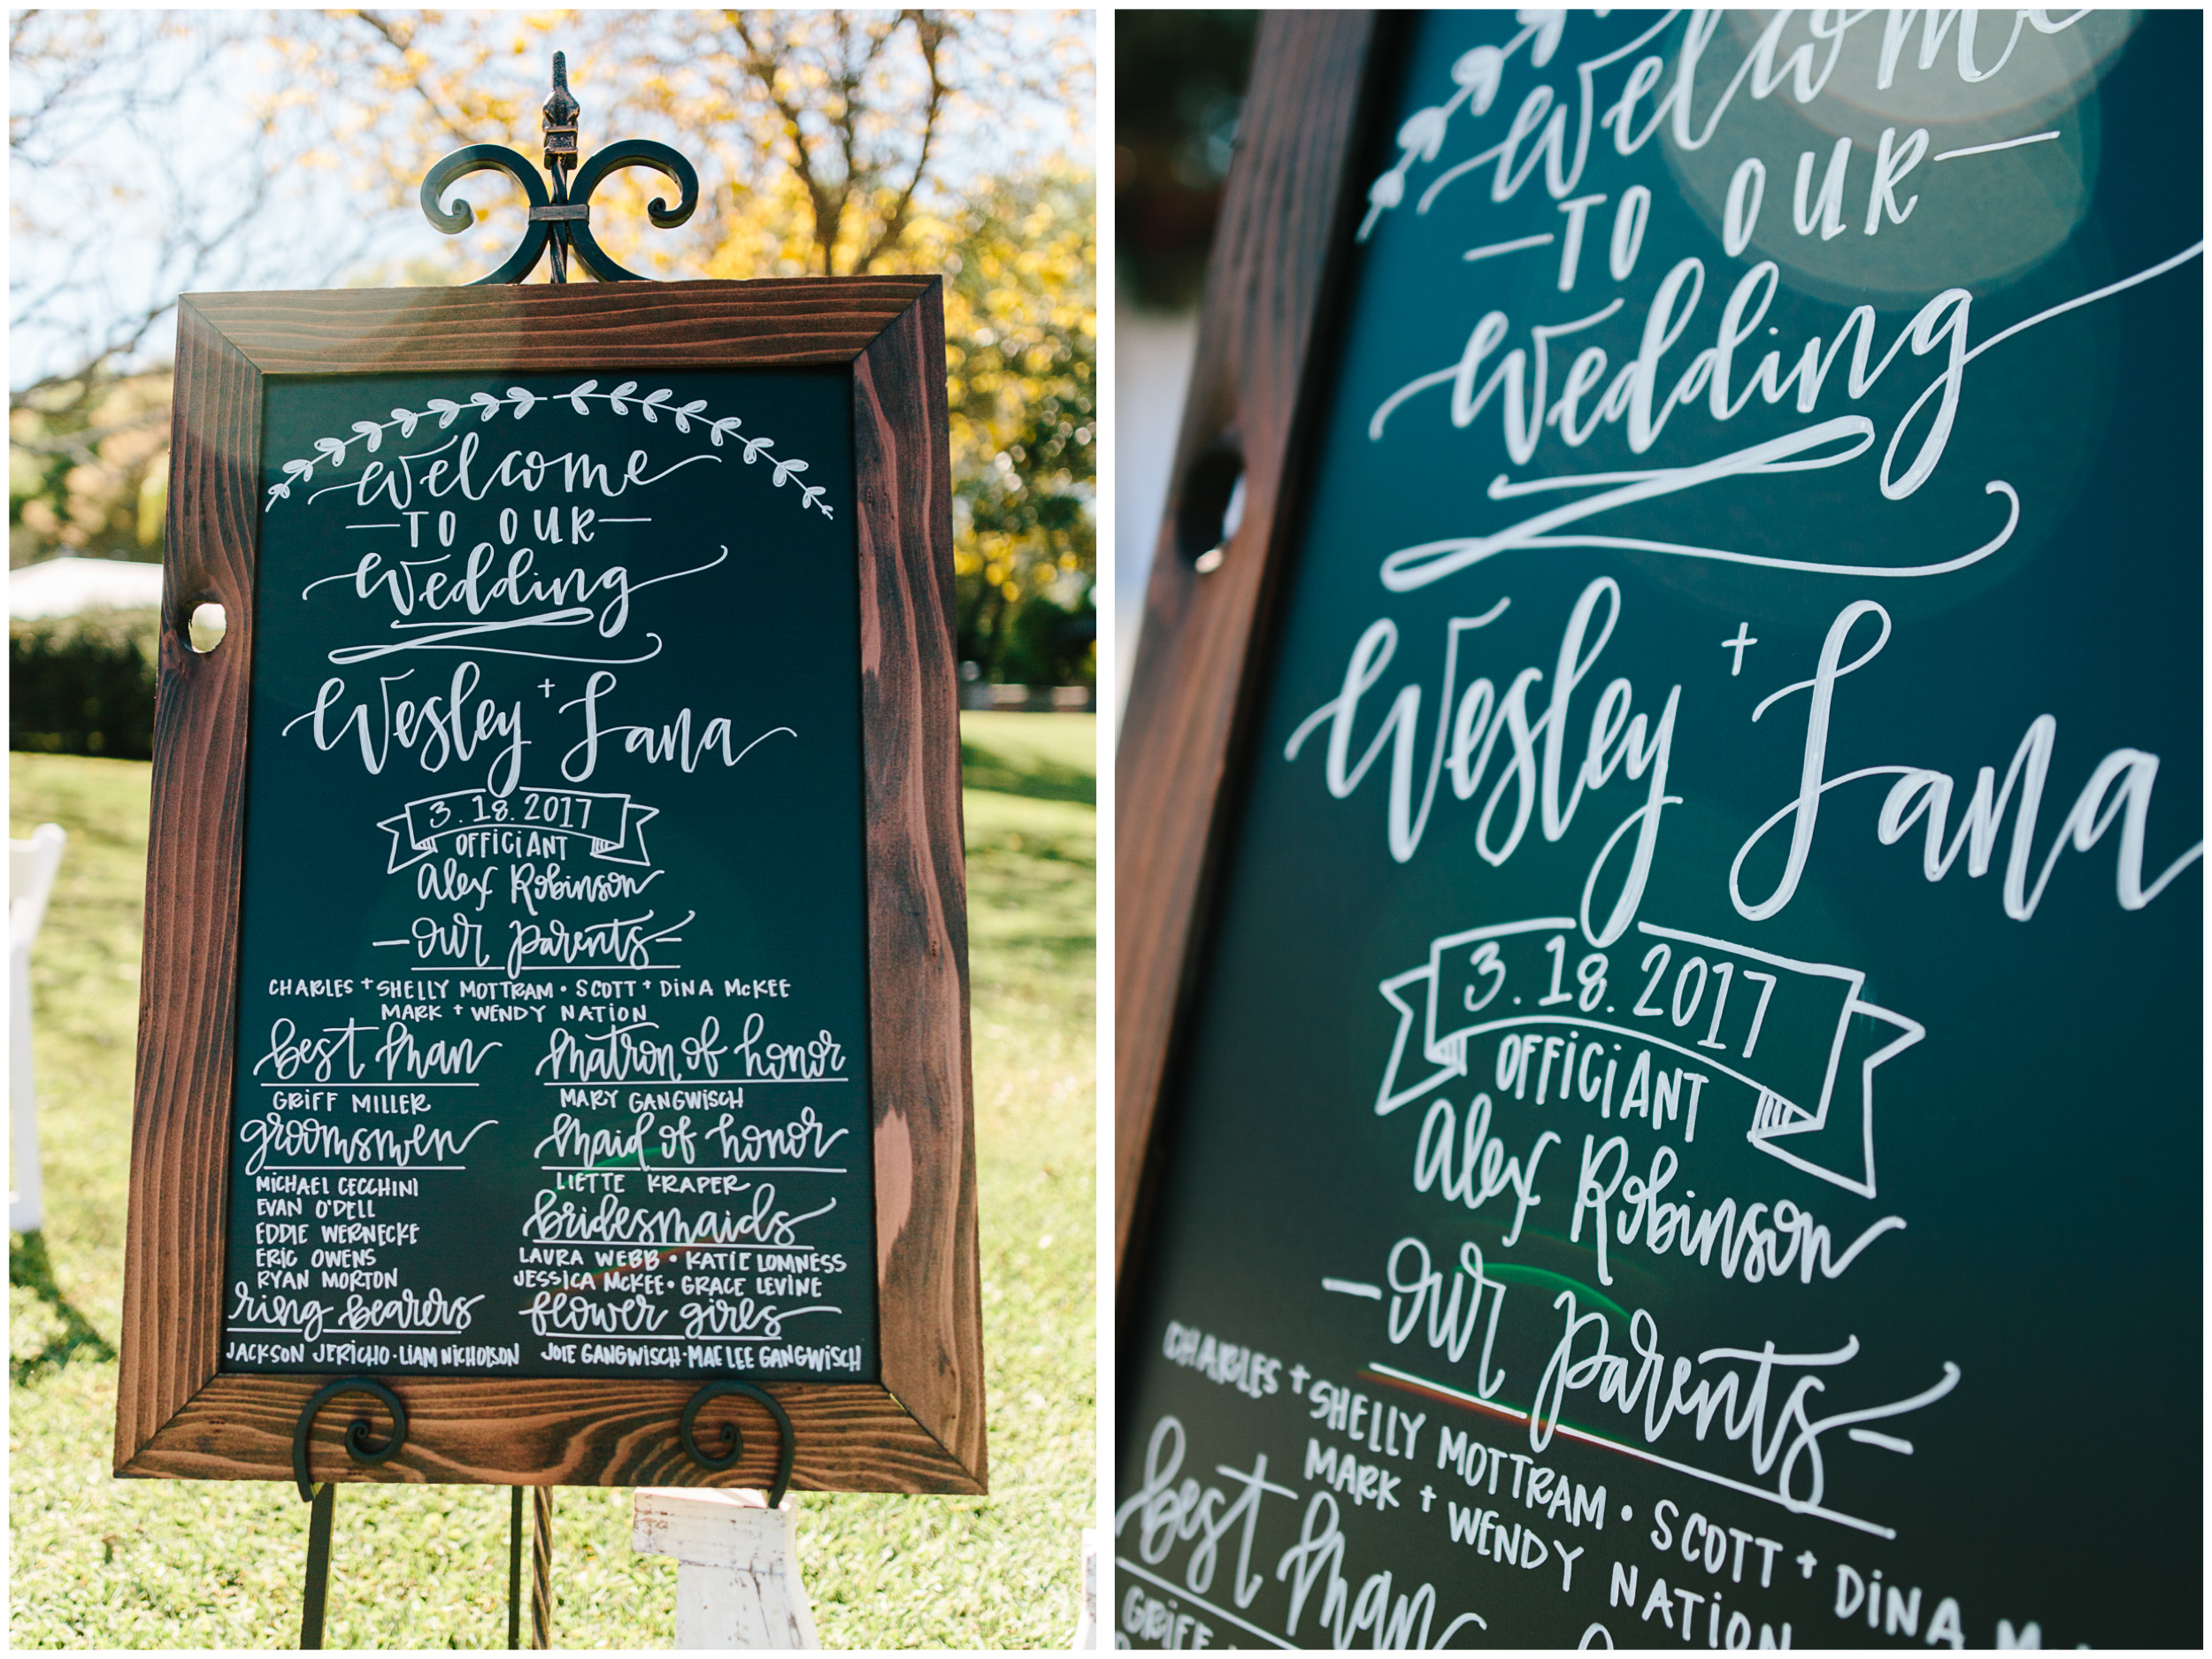 Welcome
TO OUR
Wedding
Wesley + Lana
3.18.2017
OFFICIANT
Alex Robinson
our parents
CHARLES + SHELLY MOTTRAM • SCOTT + DINA McKEE
MARK + WENDY NATION
best man
GRIFF MILLER
groomsmen
MICHAEL CECCHINI
EVAN O'DELL
EDDIE WERNECKE
ERIC OWENS
RYAN MORTON
ring bearers
JACKSON JERICHO • LIAM NICHOLSON
matron of honor
MARY GANGWISCH
maid of honor
LIETTE KRAPER
bridesmaids
LAURA WEBB • KATIE LOMNESS
JESSICA McKEE • GRACE LEVINE
flower girls
JOIE GANGWISCH • MAE LEE GANGWISCH
Welcome
TO OUR
Wedding
Wesley + Lana
3.18.2017
OFFICIANT
Alex Robinson
our parents
CHARLES + SHELLY MOTTRAM • SCOTT + DINA M
MARK + WENDY NATION
best man
GRIFF